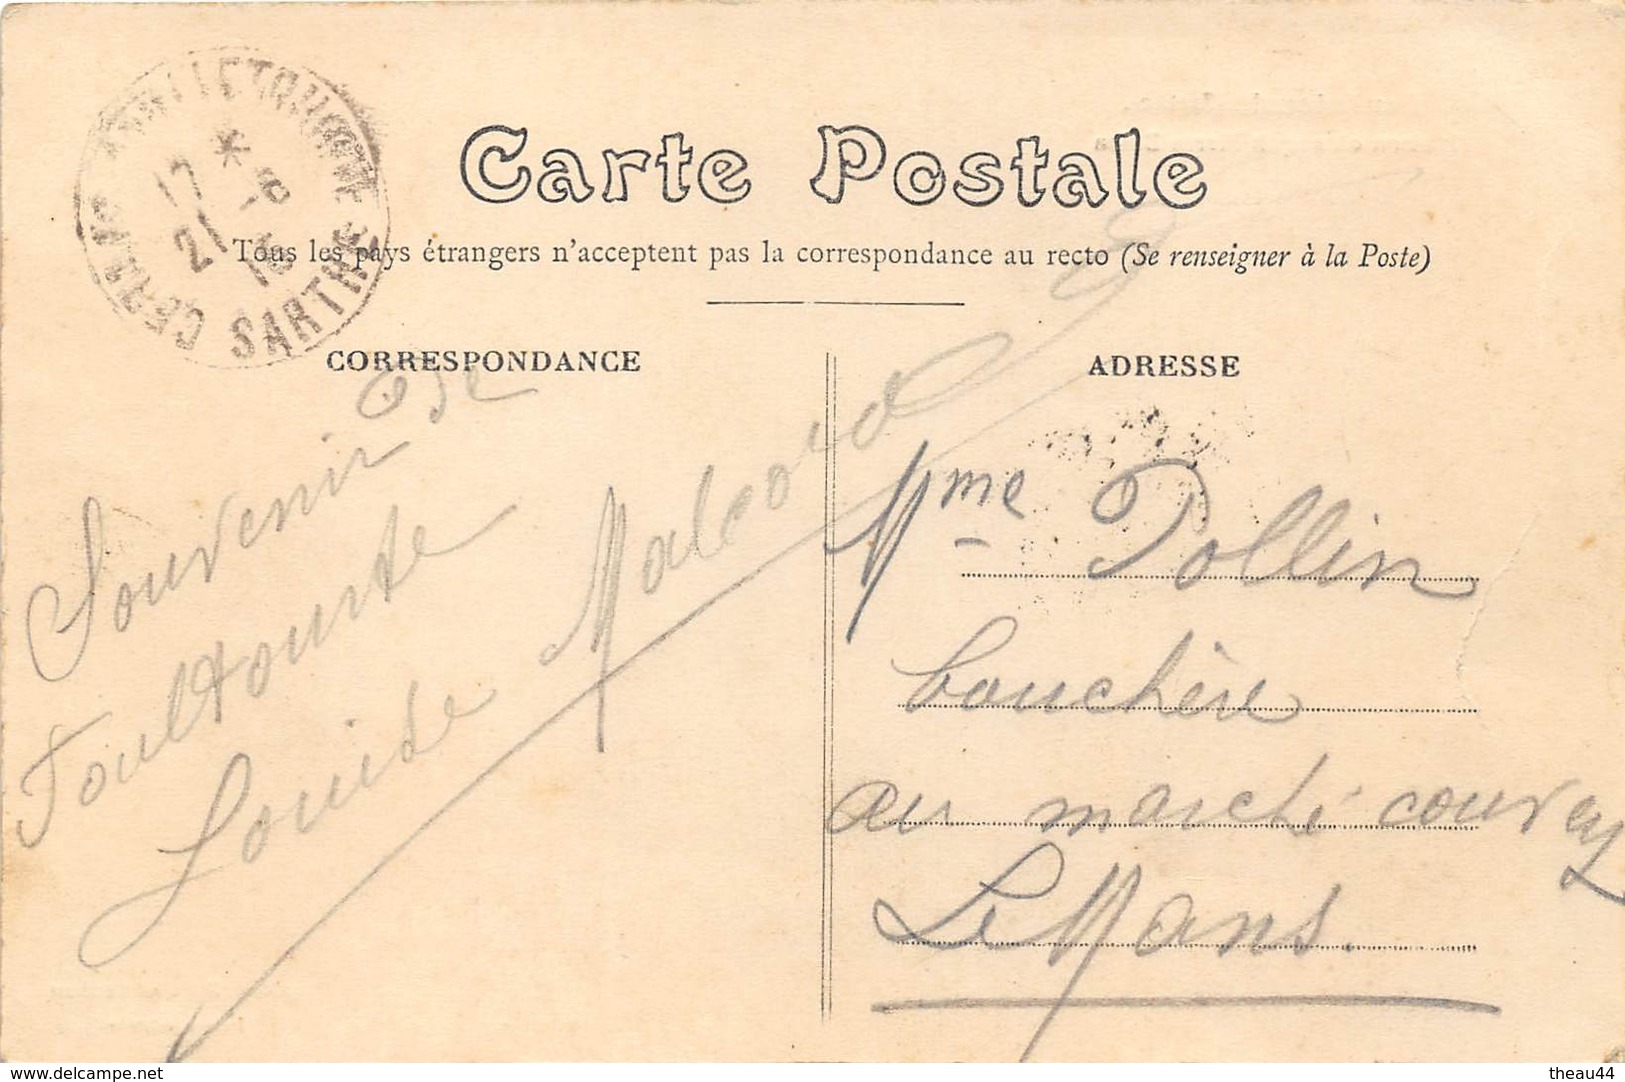 Carte Postale
Tous les pays étrangers n'acceptent pas la correspondance au recto (Se renseigner à la Poste)
CORRESPONDANCE
ADRESSE
17 *
21 -8
SARTHE
Souvenir de
Toultourte
Louise Malcord
Mme Pollin
bouchère
au marché couvey
Le Mans.
www.delcampe.net
theau44